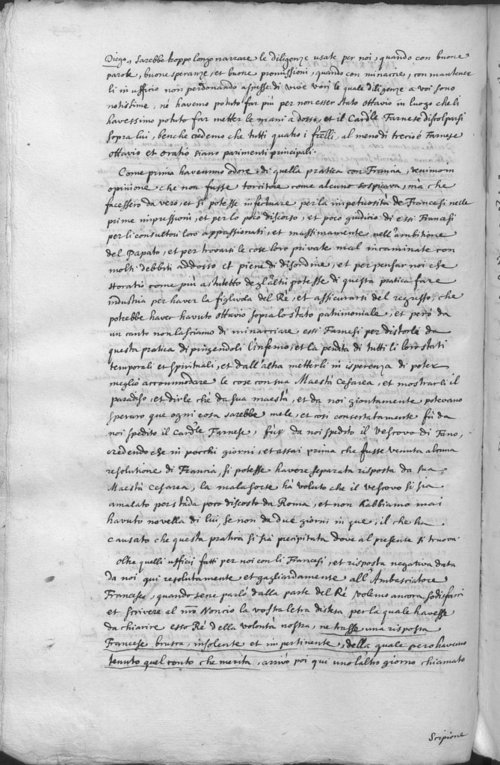 Diego, sarebbe troppo longo narrare le diligenze usate per noi, quando con buone
parole, buone speranze, et buone promissioni, quando con minaccie, con mantener
li in ufficio non perdonando a spese di vive voci le quale diligenze a voi sono
notissime, né havemo potuto far più per non esser stato ottavio in luogo che li
havessimo potuto far metter le mani à dosso, et il Cardle Farnese discolparsi
sopra lui, benche credemo che tutti quatro i frelli, al meno di tre cioè Farnese
ottavio et oratio siano parimenti principali.
Come prima havemmo odore di quella pratica con Francia, venimmo in
opinione che non fusse torcitore come alcuno sospicava, ma che
facessero da vero, et si potesse infectuare per la impetuosità de Francesi nelle
prime impressioni, et per lo poco discorso, et poco giudicio di essi Farnesi
per li consultori loro appassionati, et massimamente nell'ambitione
del Papato, et per trovarsi le cose loro private mal incaminate con
molti debbiti addosso et piene di disordine, et per pensar noi che
Horatio come più astutetto de gl'altri potesse di questa pratica fare
industria per haver la figliuola del Re, et assicurarsi del regresso, che
potrebbe haver havuto ottavio sopra lo stato patrimoniale, et però da
un canto non lasciamo di minacciare essi Farnesi per distorli da
questa pratica di pingendoli l'inferno, et la perdita di tutti li loro stati
temporali et spirituali, et dall'altra metterli in isperenza di poter
meglio accommodare le cose con sua Maestà Cesarea, et mostrarli il
paradiso, et dirle che da sua maestà, et da noi giontamente potevano
sperare che ogni cosa sarebbe mele, et così consertatamente fù da
noi spedito il Cardle Farnese, fù da noi spedito il vescovo di Fano,
credendo che in pochi giorni, et assai prima che fusse venuta alcuna
resolutione di Francia, si potesse havere separata risposta da sua
Maestà Cesarea, la mala sorte hà voluto che il vescovo si sia
amalato poi stada poco discosto da Roma, et non habbiamo mai
havuto novella di lui, se non da due giorni in quà, il che ha
causato che questa pratica si sia precipitata dove al presente si truova
oltre quelli ufficii fatti per noi con li Francesi, et risposta negativa data
da noi qui resolutamente et gagliardamente all'Ambasciatore
Francese, quando sene parlò dalla parte del Ré volemo ancora sodisfarci
et scrivere al nro Noncio la vostra letra distesa, per la quale havesse
da chiarire esto Ré della volontà nostra, ne trasse una risposta
Francese brutta, insolente et impertinente, della quale però havemo
tenuto quel conto che merita, arrivò poi qui uno l'altro giorno chiamato
Scipione